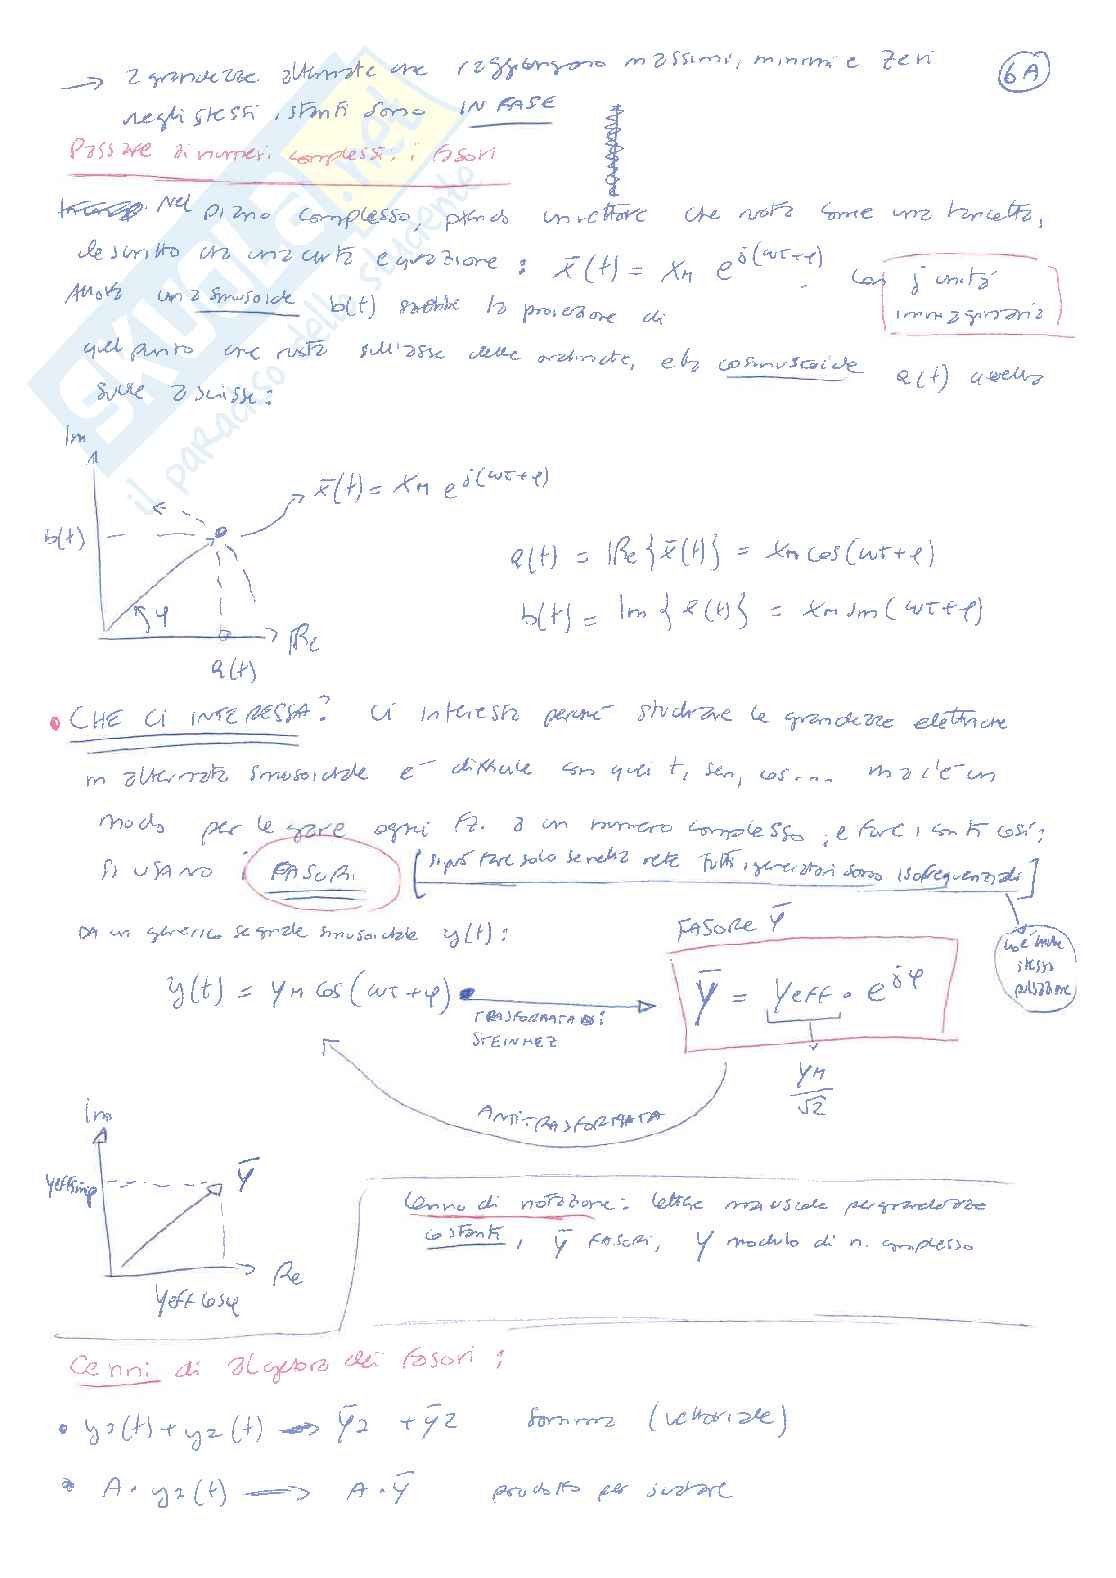 → 2 grandezze alternate che raggiungono massimi, minimi e zeri
6A
negli stessi istanti sono IN FASE
Passare ai numeri complessi: i fasori
Nel piano complesso, prendo un vettore che ruota come una lancetta,
descritto da una certa equazione: x̄(t) = X_M e^j(ωt+φ). Con j unità
immaginaria
Allora una sinusoide b(t) sarebbe la proiezione di
quel punto che ruota sull'asse delle ordinate, e la cosinusoide a(t) quella
sulle ascisse:
Im
x̄(t) = X_M e^j(ωt+φ)
b(t)
a(t) = Re{x̄(t)} = X_M cos(ωt+φ)
b(t) = Im{x̄(t)} = X_M sin(ωt+φ)
φ
Re
a(t)
• CHE CI INTERESSA? Ci interessa perché studiare le grandezze elettriche
in alternata sinusoidale è difficile con quei t, sen, cos.... ma c'è un
modo per legare ogni fz. a un numero complesso, e fare i conti così:
SI USANO I FASORI [si può fare solo se nella rete tutti i generatori sono isofrequenziali]
DA un generico segnale sinusoidale y(t):
FASORE Ȳ
cioè hanno
stessa
pulsazione
y(t) = Y_M cos(ωt+φ)
TRASFORMATA DI
STEINMEZ
Ȳ = Yeff · e^jφ
Y_M
√2
ANTITRASFORMATA
Im
Ȳ
Yeff sinφ
Re
Yeff cosφ
Cenno di notazione: lettere maiuscole per grandezze
costanti, Ȳ FASORI, Y modulo di n. complesso
Cenni di algebra dei fasori:
• y1(t) + y2(t) → Ȳ1 + Ȳ2 Somma (vettoriale)
• A · y1(t) → A · Ȳ prodotto per scalare
skuola.net
il paradiso dello studente